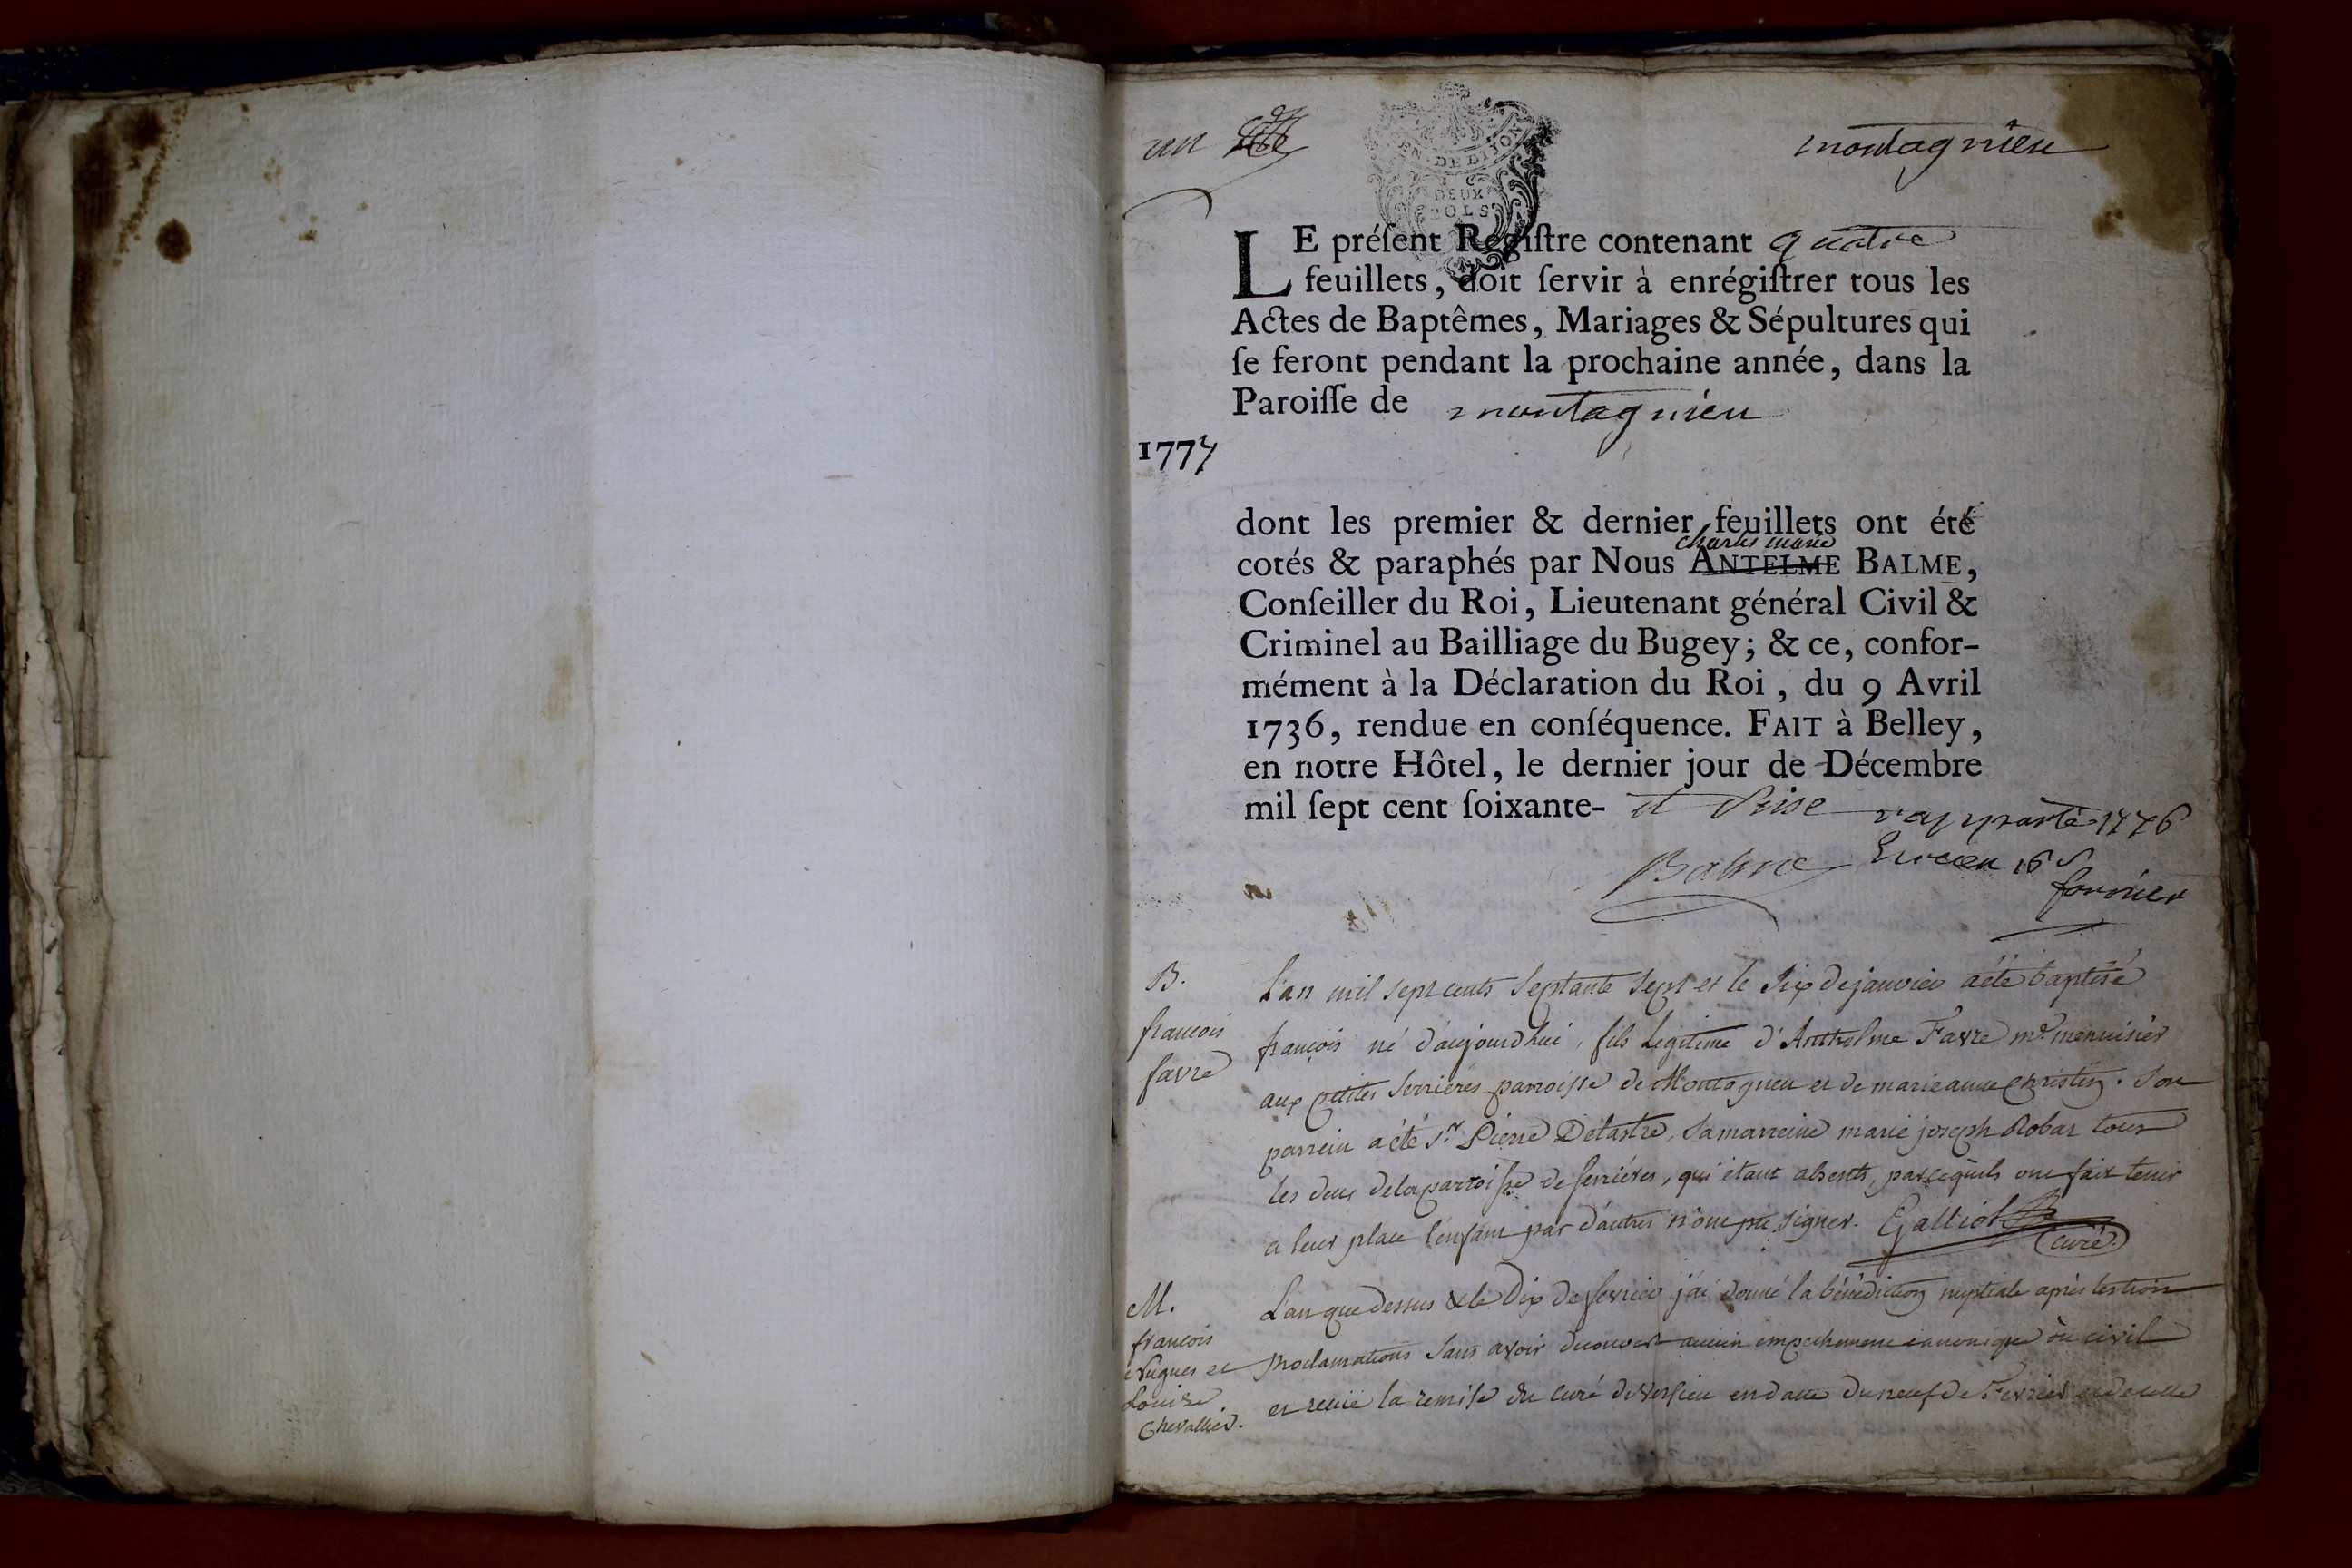 un
EN · DE DIJON
DEUX
SOLS
montagnieu
LE préſent Regiſtre contenant quatre
feuillets, doit ſervir à enrégiſtrer tous les
Actes de Baptêmes, Mariages & Sépultures qui
ſe feront pendant la prochaine année, dans la
Paroiſſe de montagnieu
1777
dont les premier & dernier feuillets ont été
charles marie
cotés & paraphés par Nous ANTELME BALME,
Conſeiller du Roi, Lieutenant général Civil &
Criminel au Bailliage du Bugey; & ce, confor-
mément à la Déclaration du Roi, du 9 Avril
1736, rendue en conſéquence. FAIT à Belley,
en notre Hôtel, le dernier jour de Décembre
mil ſept cent ſoixante- et Seise
rapporté 1776
Balme
16 s
fornier
B.
françois
favre
L'an mil sept cents Septante Sept et le Six de janvier a été baptisé
françois né d'aujourdhui, fils Legitime d'Anthelme Favre md. menuisier
aux petites Serrieres parroisse de Montagneu et de marie anne christin. Son
parrein a été sr. Pierre Delastre, Sa marreine marie joseph Robat tous
les deux de la parroisse de serriéres, qui étant absents, parcequ'ils ont fait tenir
a leur place l'enfant par d'autres n'ont pu signer. Galliot
curé.
M.
françois
Nugues et
Louise
Chevallier.
L'an que dessus & le Dix de fevrier j'ai donné la bénédiction nuptiale après les trois
proclamations Sans avoir decouvert aucun empechement canonique où civil
et reçüe la remise du curé de versieu en datte du neuf de Fevrier et de celle